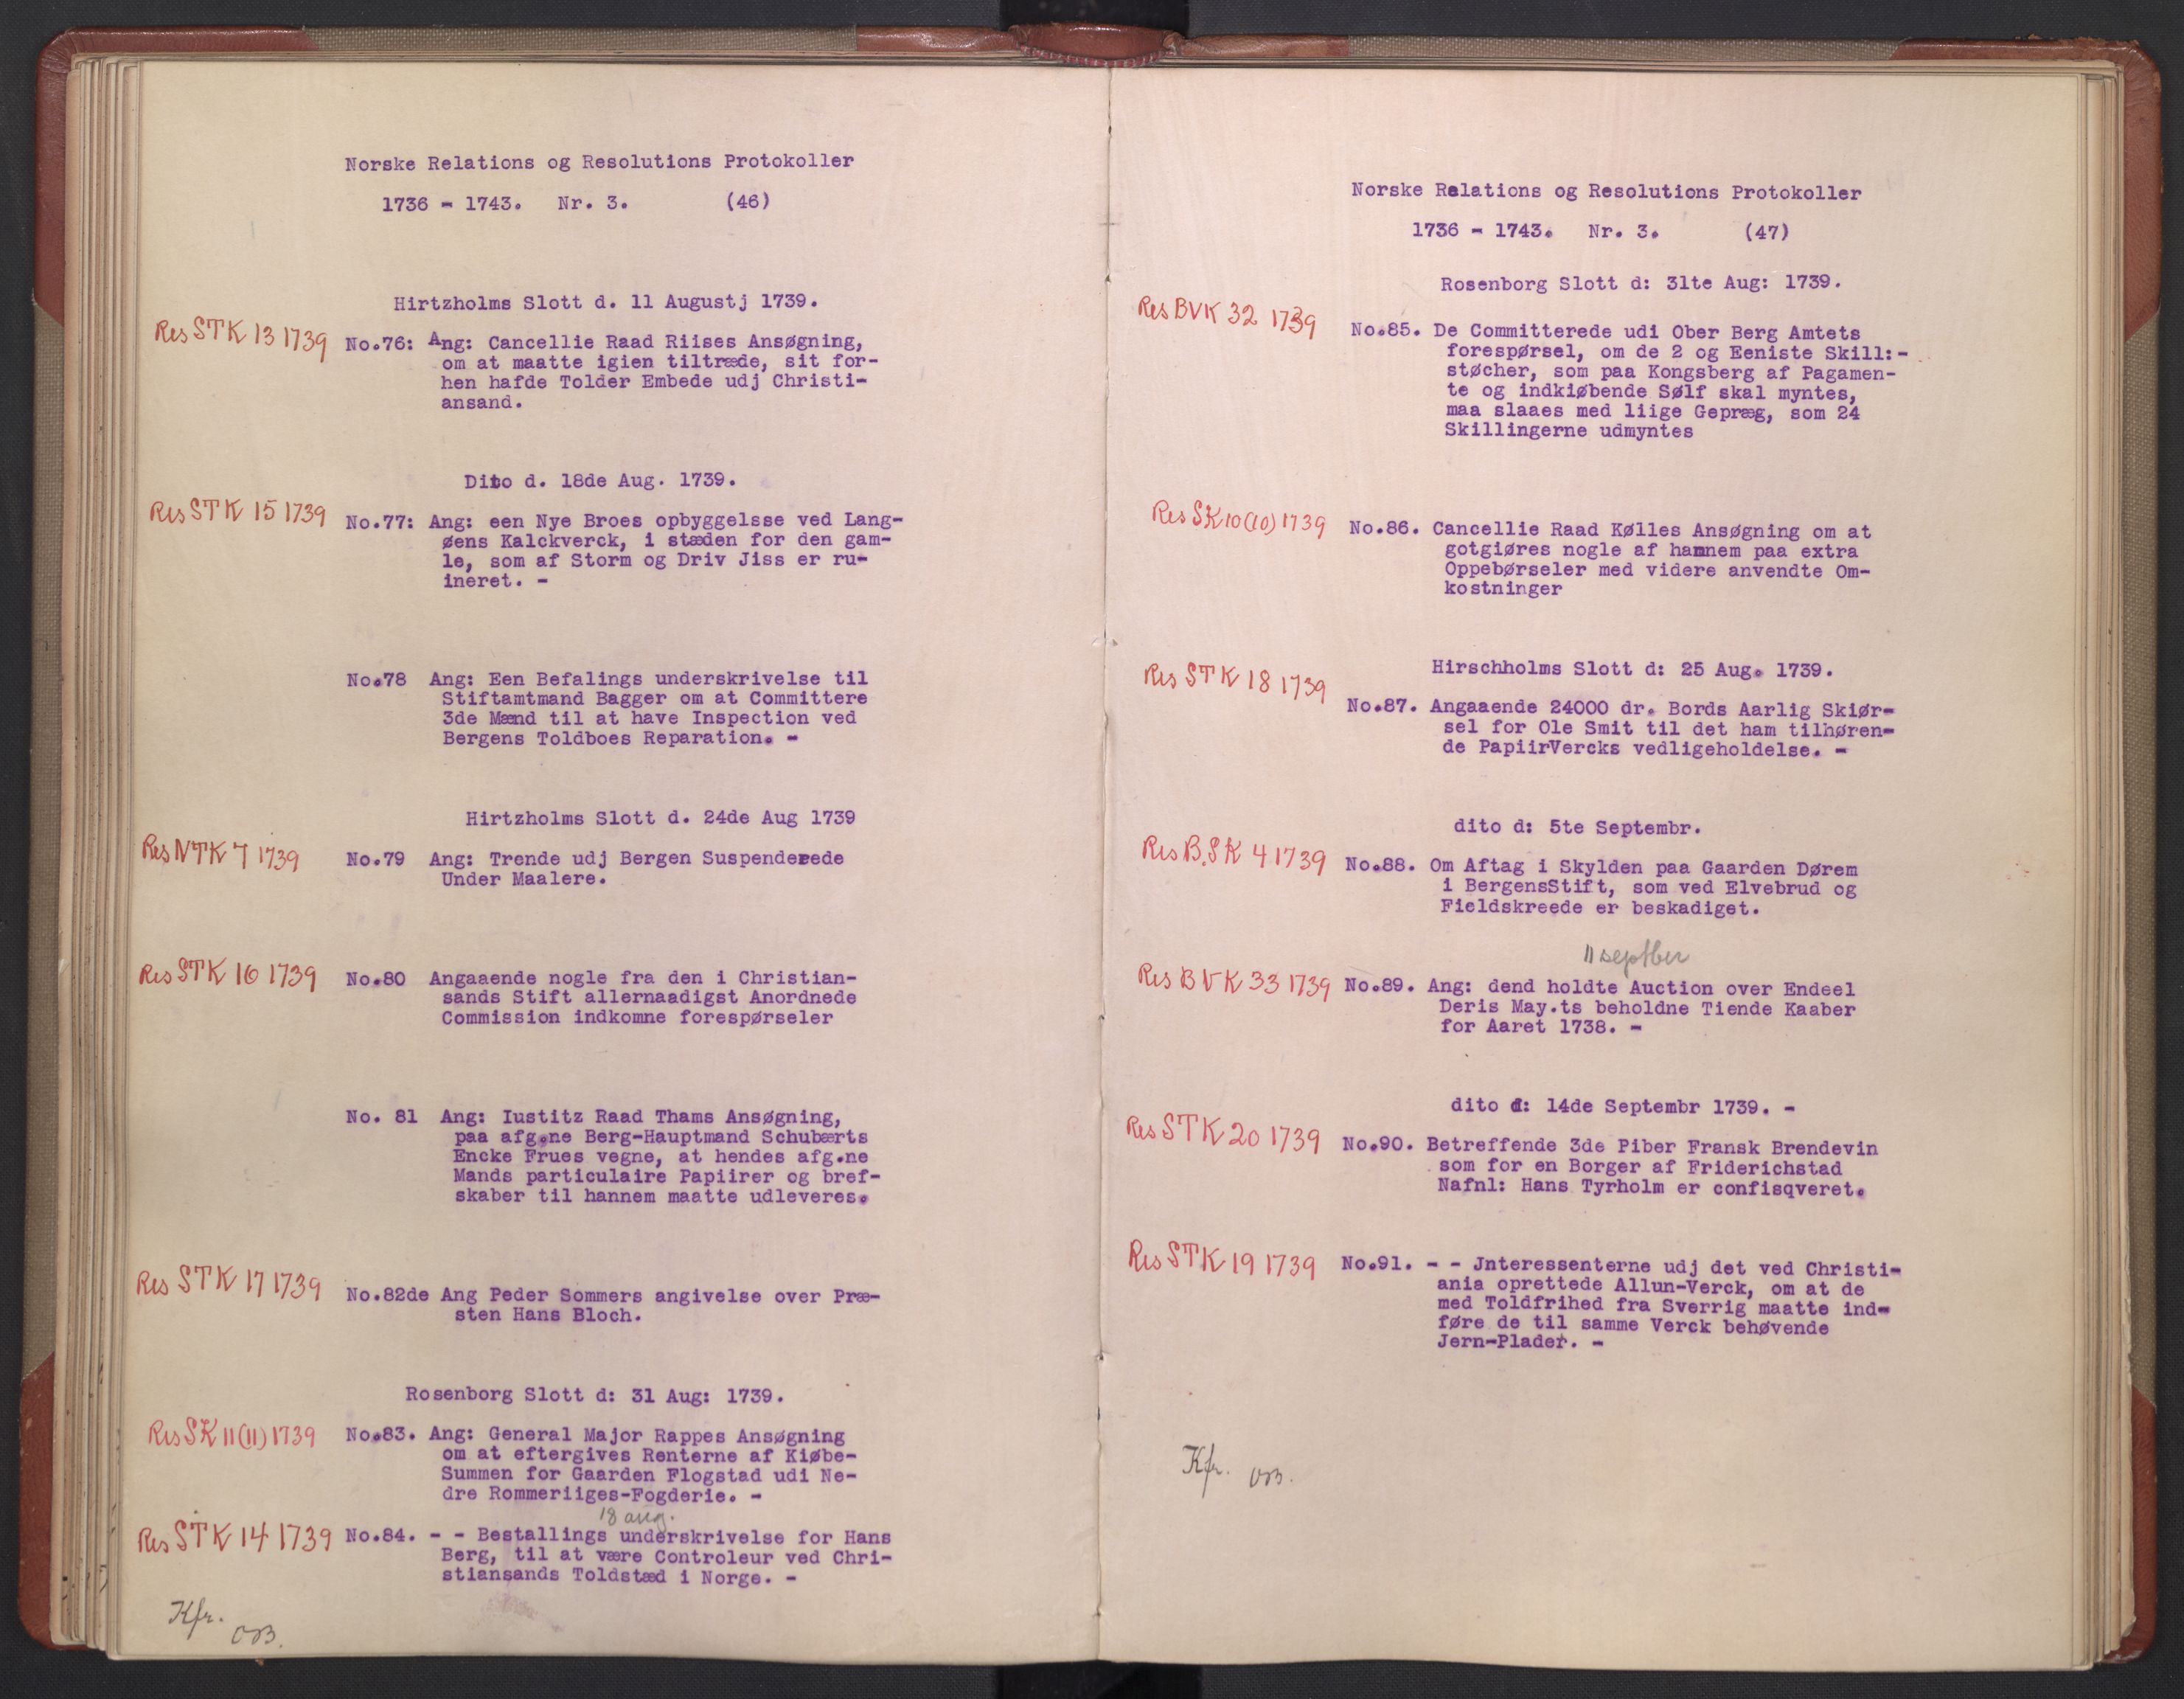 Norske Relations og Resolutions Protokoller
1736 - 1743. Nr. 3. (46)
Hirtzholms Slott d. 11 Augustj 1739.
Res STK 13 1739
No.76: Ang: Cancellie Raad Riises Ansøgning,
om at maatte igien tiltræde, sit for-
hen hafde Tolder Embede udj Christi-
ansand.
Dito d. 18de Aug. 1739.
Res STK 15 1739
No.77: Ang: een Nye Broes opbyggelsse ved Lang-
øens Kalckverck, i stæden for den gam-
le, som af Storm og Driv Jiss er ru-
ineret. -
No.78 Ang: Een Befalings underskrivelse til
Stiftamtmand Bagger om at Committere
3de Mænd til at have Inspection ved
Bergens Toldboes Reparation. -
Hirtzholms Slott d. 24de Aug 1739
Res NTK 7 1739
No.79 Ang: Trende udj Bergen Suspenderede
Under Maalere.
Res STK 16 1739
No.80 Angaaende nogle fra den i Christian-
sands Stift allernaadigst Anordnede
Commission indkomne forespørseler
No. 81 Ang: Iustitz Raad Thams Ansøgning,
paa afg.ne Berg-Hauptmand Schubærts
Encke Frues vegne, at hendes afg.ne
Mands particulaire Papiirer og bref-
skaber til hannem maatte udleveres.
Res STK 17 1739
No.82de Ang Peder Sommers angivelse over Præ-
sten Hans Bloch.
Rosenborg Slott d: 31 Aug: 1739.
Res SK 11 (11) 1739
No.83. Ang: General Major Rappes Ansøgning
om at eftergives Renterne af Kiøbe-
Summen for Gaarden Flogstad udi Ne-
dre Rommeriiges-Fogderie. -
18 aug.
Res STK 14 1739
No.84. - - Bestallings underskrivelse for Hans
Berg, til at være Controleur ved Chri-
stiansands Toldstæd i Norge. -
Kfr.
OB.
Norske Relations og Resolutions Protokoller
1736 - 1743. Nr. 3. (47)
Rosenborg Slott d: 31te Aug: 1739.
Res BVK 32 1739
No.85. De Committerede udi Ober Berg Amtets
forespørsel, om de 2 og Eeniste Skill:-
støcher, som paa Kongsberg af Pagamen-
te og indkiøbende Sølf skal myntes,
maa slaaes med liige Gepræg, som 24
Skillingerne udmyntes
Res SK 10 (10) 1739
No.86. Cancellie Raad Kølles Ansøgning om at
gotgiøres nogle af hannem paa extra
Oppebørseler med videre anvendte Om-
kostninger
Hirschholms Slott d: 25 Aug. 1739.
Res STK 18 1739
No.87. Angaaende 24000 dr. Bords Aarlig Skiør-
sel for Ole Smit til det ham tilhøren-
de PapiirVercks vedligeholdelse. -
dito d: 5te Septembr.
Res B.SK 4 1739
No.88. Om Aftag i Skylden paa Gaarden Dørem
i BergensStift, som ved Elvebrud og
Fieldskreede er beskadiget.
11 septber
Res BVK 33 1739
No.89. Ang: dend holdte Auction over Endeel
Deris May.ts beholdne Tiende Kaaber
for Aaret 1738. -
dito d: 14de Septembr 1739. -
Res STK 20 1739
No.90. Betreffende 3de Piber Fransk Brendevin
som for en Borger af Friderichstad
Nafnl: Hans Tyrholm er confisqveret.
Res STK 19 1739
No.91. - - Jnteressenterne udj det ved Christi-
ania oprettede Allun-Verck, om at de
med Toldfrihed fra Sverrig maatte ind-
føre de til samme Verck behøvende
Jern-Plader. -
Kfr. OB.